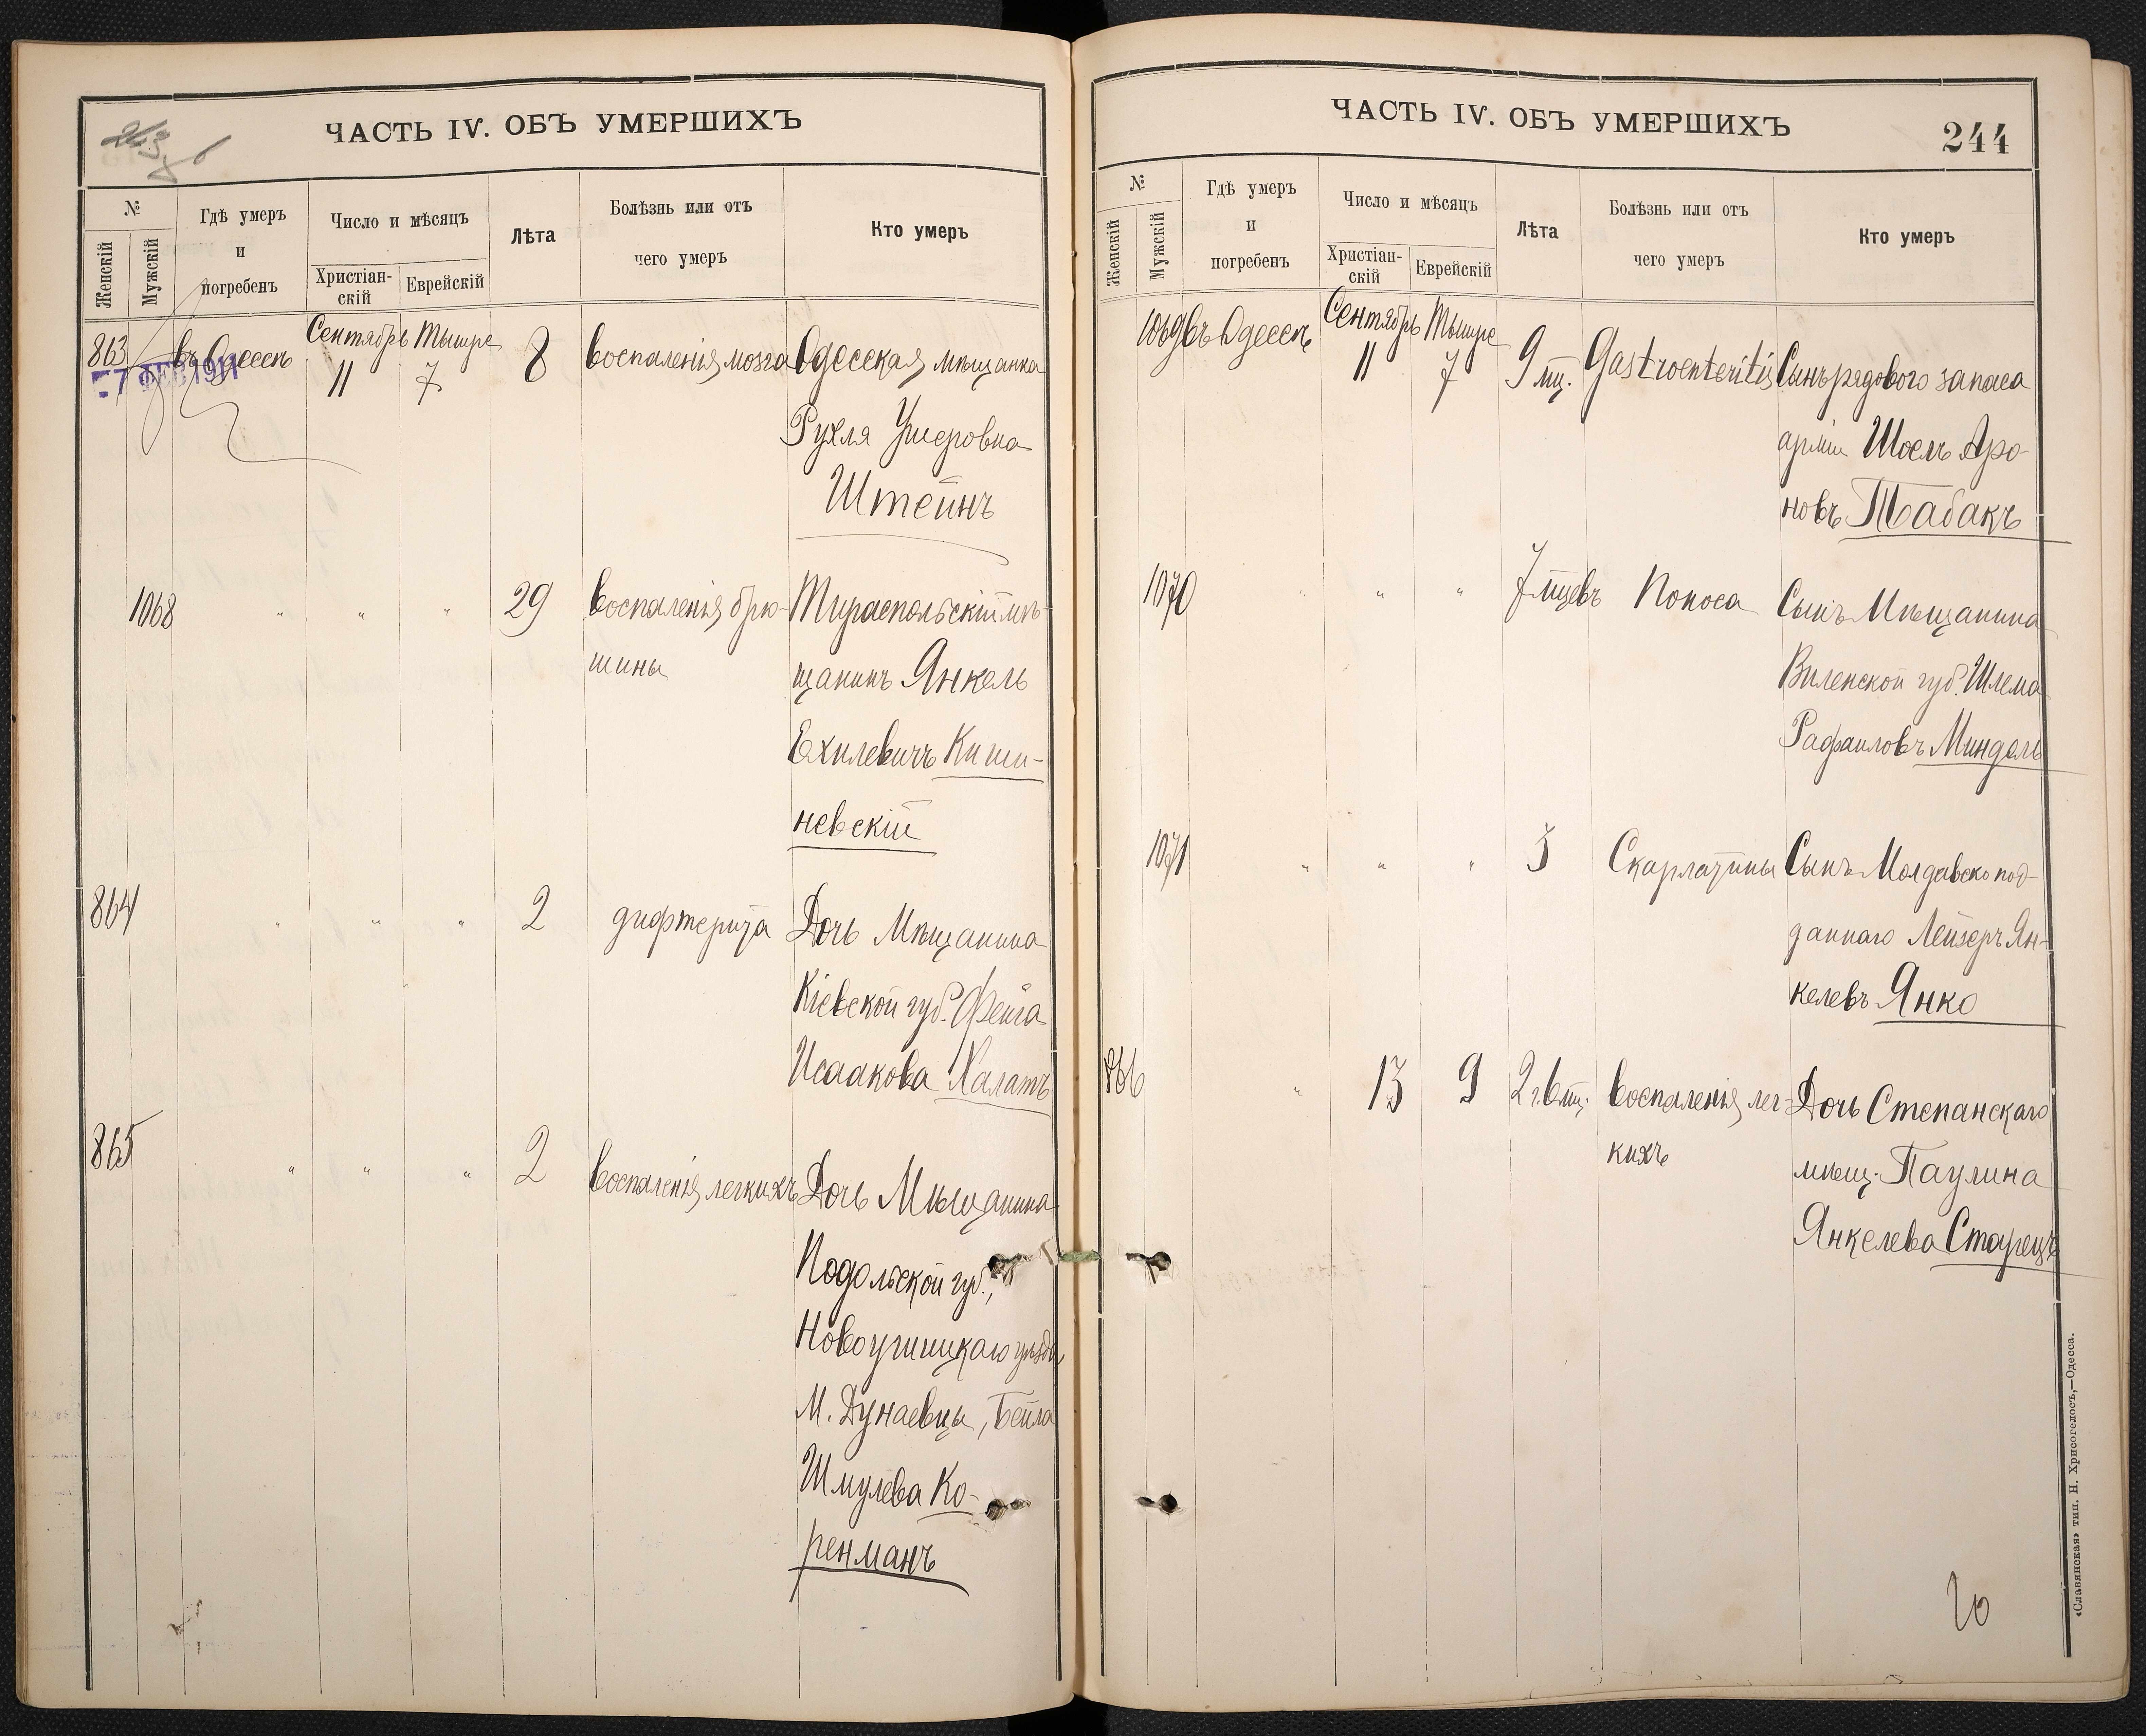 ЧАСТЬ IV. ОБЪ УМЕРШИХЪ
№
Женскій
Мужскій
Гдѣ умеръ
и
погребенъ
Число и мѣсяцъ
Христіан-
скій
Еврейскій
Лѣта
Болѣзнь или отъ
чего умеръ
Кто умеръ
863
въ Одессѣ
7 ФЕВ 1911
Сентябрь Тышре
11 7
8
воспаленія мозга
Одесская мѣщанка
Рухля Ушеровна
Штейнъ
1068
"
"
"
29
воспаленія брю-
шины
Тираспольскій мѣ-
щанинъ Янкель
Ехилевичъ Киши-
невскій
864
"
"
"
2
дифтерита
Дочь Мѣщанина
Кіевской губ. Фейга
Исаакова Халатъ
865
"
"
"
2
воспаленія легкихъ
Дочь Мѣщанина
Подольской губ.,
Новоушицкаго уѣзда
М. Дунаевцы, Бейла
Шмулева Ко-
ренманъ
ЧАСТЬ IV. ОБЪ УМЕРШИХЪ
244
№
Женскій
Мужскій
Гдѣ умеръ
и
погребенъ
Число и мѣсяцъ
Христіан-
скій
Еврейскій
Лѣта
Болѣзнь или отъ
чего умеръ
Кто умеръ
1069
въ Одессѣ
Сентябрь Тышре
11 7
9 мц.
Gastroenteritis
Сынъ рядового запаса
арміи Шоель Аро-
новъ Табакъ
1070
"
"
"
7 мцевъ
Поноса
Сынъ Мѣщанина
Виленской губ. Шлема
Рафаиловъ Миндель
1071
"
"
"
5
Скарлатины
Сынъ Молдавско под-
даннаго Лейзеръ Ян-
келевъ Янко
866
"
13
9
2 г. 6 мц.
воспаленія лег-
кихъ
Дочь Степанскаго
мѣщ. Паулина
Янкелева Старецъ
«Славянская» тип. Н. Хрисогелосъ,—Одесса.